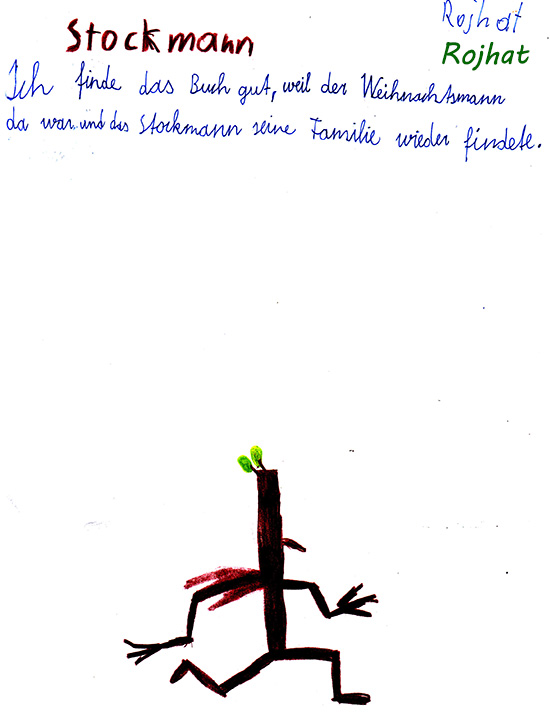 Stockmann
Rojhat
Rojhat
Ich finde das Buch gut, weil der Weihnachtsmann
da war und das Stockmann seine Familie wieder findete.